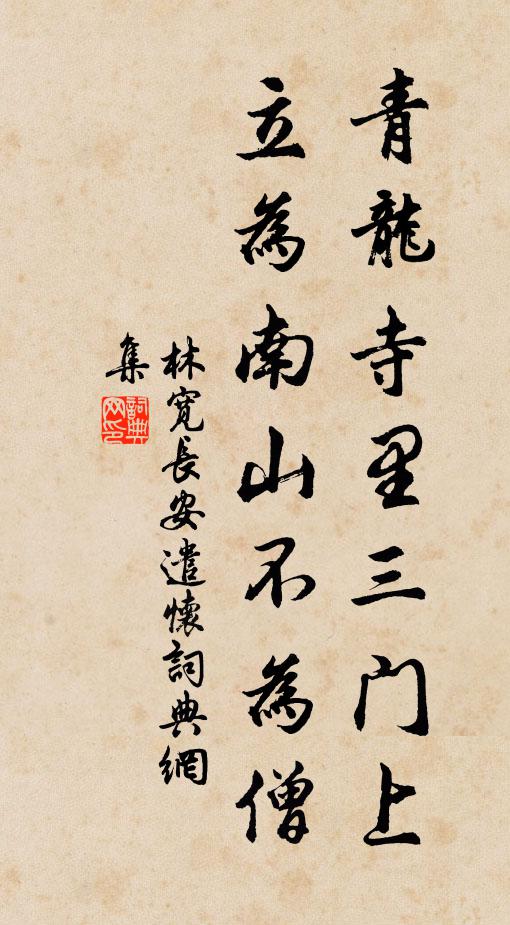 青龍寺里三門上
立為南山不為僧
林寬長安遣懷詞典網
集
詞典
网印